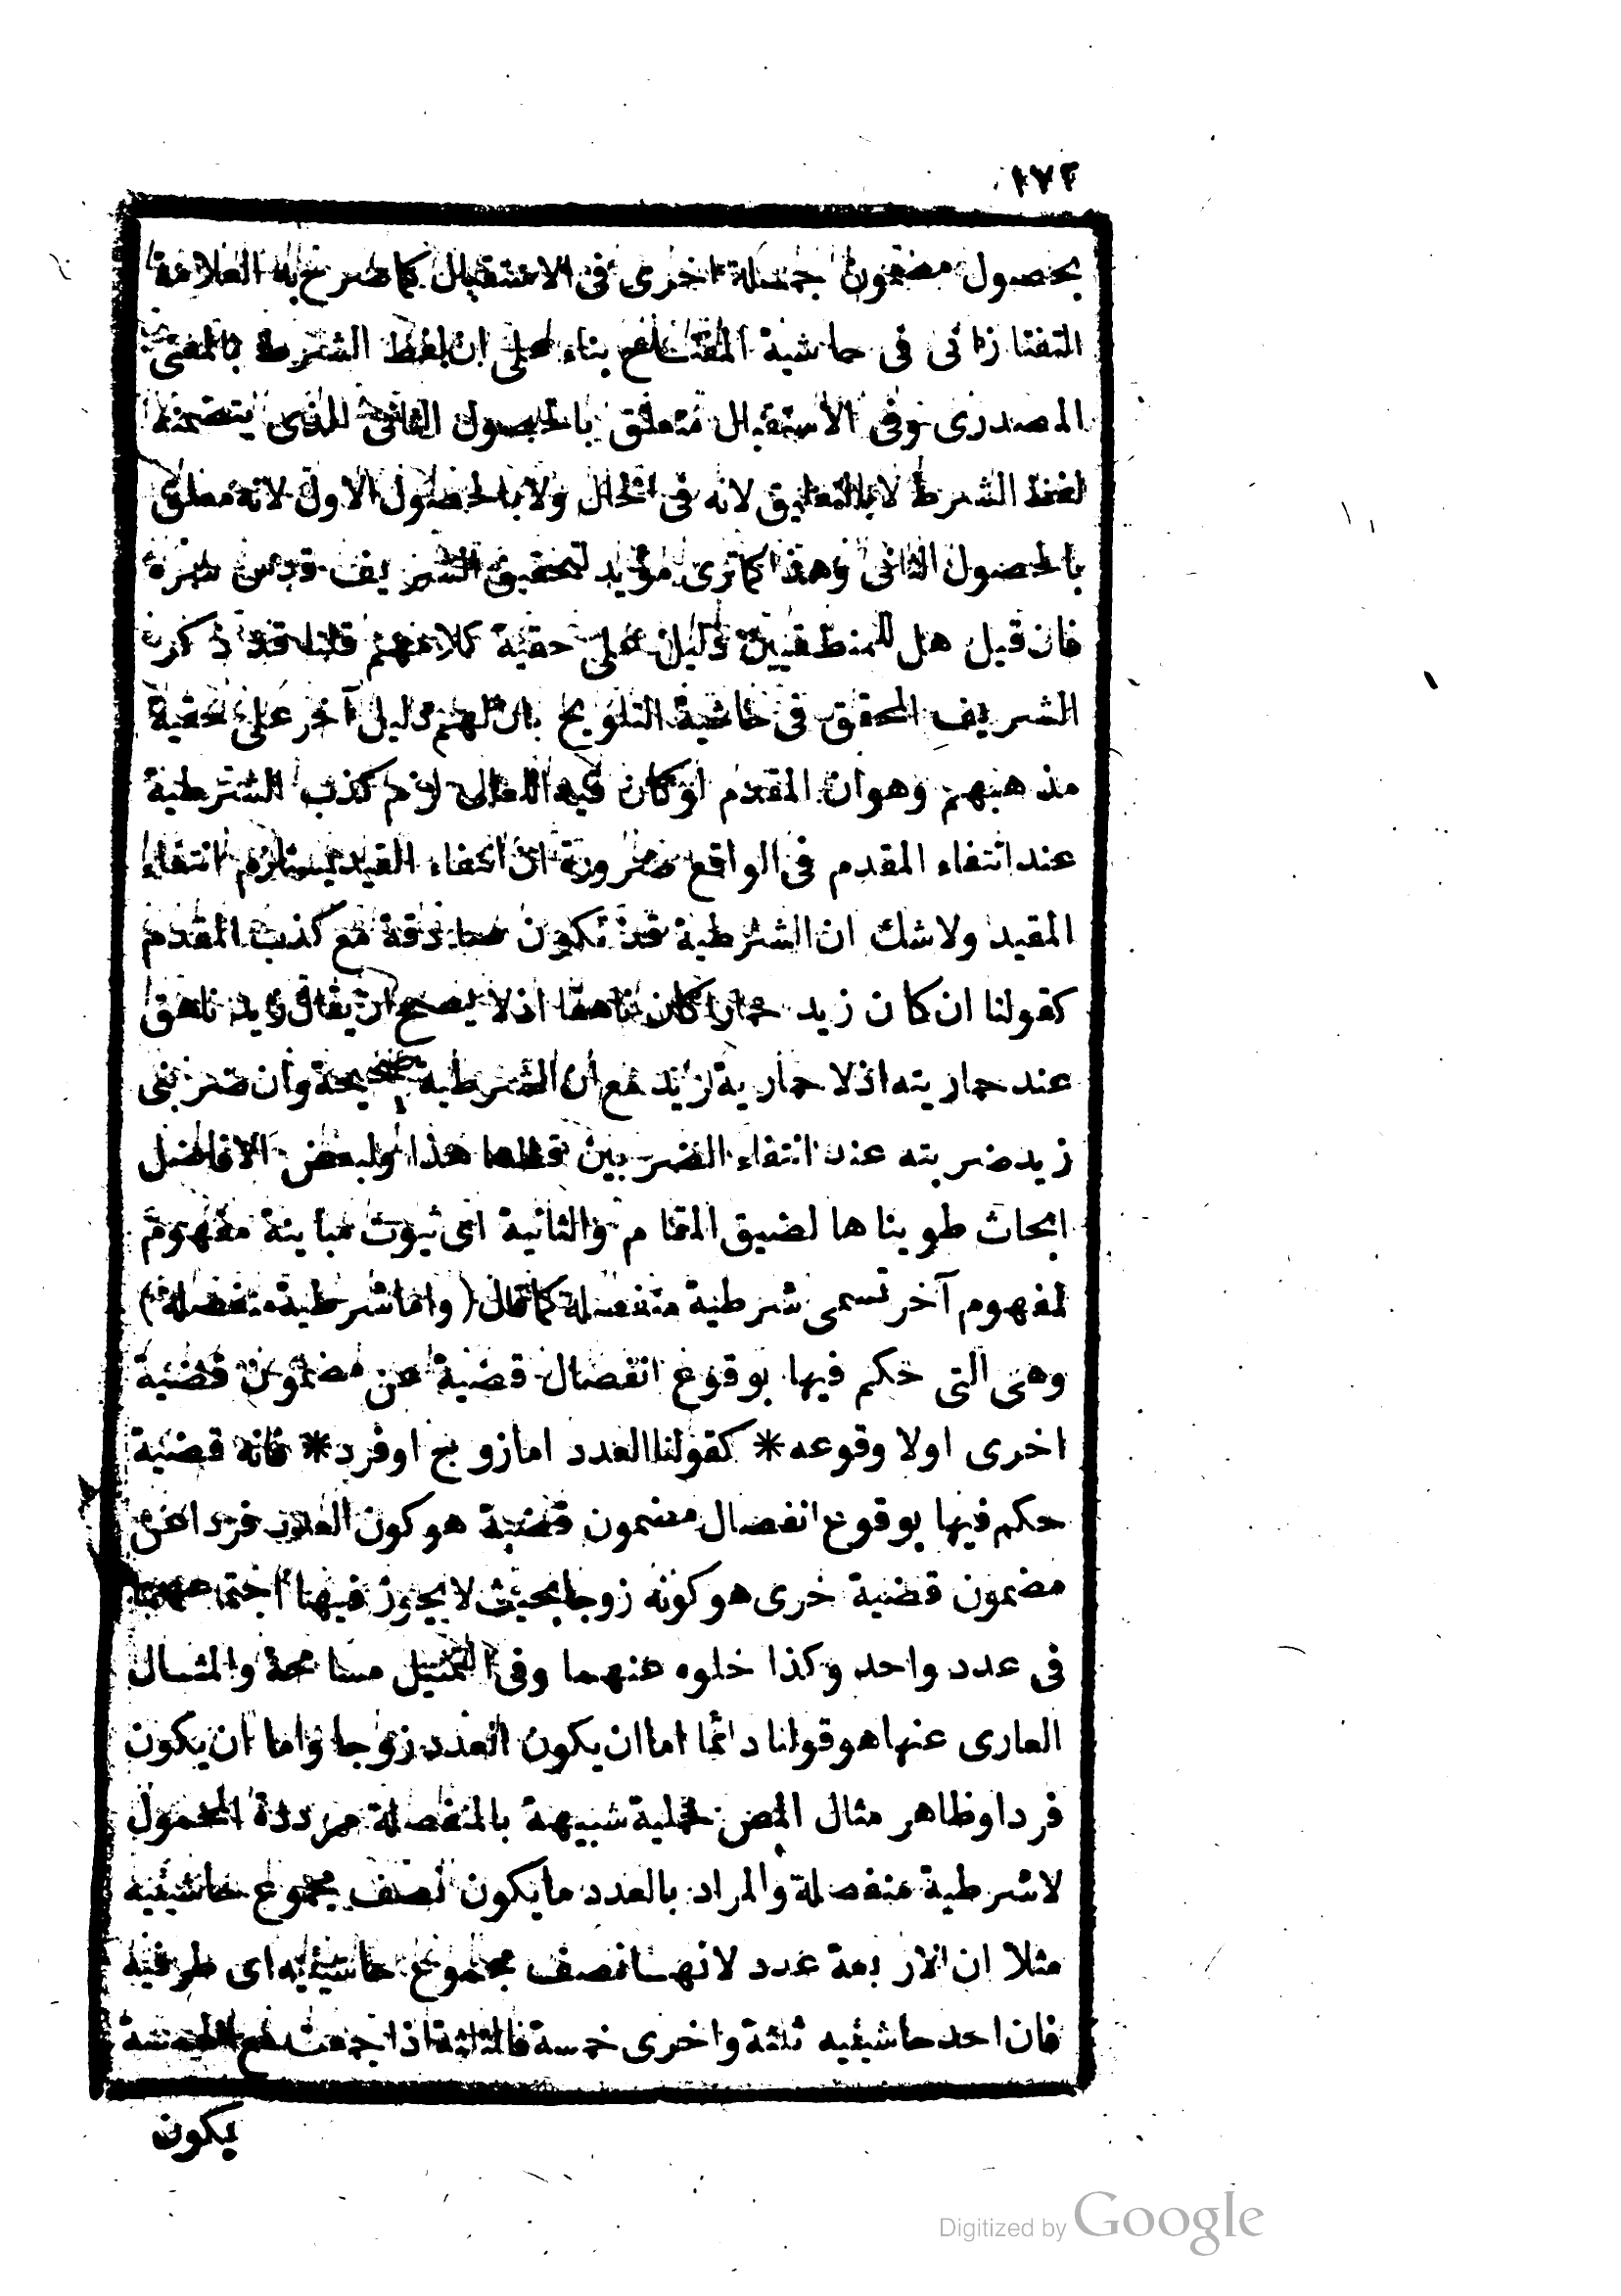 ١٧٢
بحصول مضمون جملة اخرى فى الاستقبال كما صرح به العلامة
التفتازانى فى حاشية المفتاح بناء على ان لفظ الشرط بالمعنى
المصدرى وفى الاستقبال متعلق بالحصول الثانى الذى يتضمنه
لفظ الشرط لا بالتعليق لانه فى الحال ولا بالحصول الاول لانه معلق
بالحصول الثانى وهذا كما ترى مؤيد لتحقيق الشريف قدس سره
فان قيل هل للمنطقيين دليل على حقية كلامهم قلنا قد ذكر
الشريف المحقق فى حاشية التلويح بان لهم دليل آخر على حقية
مذهبهم وهو ان المقدم لو كان قيد التالى لزم كذب الشرطية
عند انتفاء المقدم فى الواقع ضرورة ان انتفاء القيد يستلزم انتفاء
المقيد ولا شك ان الشرطية قد تكون صادقة مع كذب المقدم
كقولنا ان كان زيد حمارا كان ناهقا اذ لا يصح ان يقال زيد ناهق
عند حماريته اذ لا حمارية زيد مع ان الشرطية صحيحة وان ضربنى
زيد ضربته عند انتفاء الضربين قطعا هذا ولبعض الافاضل
ابحاث طويناها لضيق المقام والثانية اى ثبوت مباينة مفهوم
لمفهوم آخر تسمى شرطية منفصلة كما قال (واما شرطية منفصلة)
وهى التى حكم فيها بوقوع انفصال قضية عن مضمون قضية
اخرى اولا وقوعه * كقولنا العدد اما زوج او فرد * فانه قضية
حكم فيها بوقوع انفصال مضمون قضية هو كون العدد فردا عن
مضمون قضية خرى هو كونه زوجا بحيث لا يجوز فيها اجتماعهما
فى عدد واحد وكذا خلوه عنهما وفى التمثيل مسامحة والمثال
العارى عنها هو قولنا دائما اما ان يكون العدد زوجا واما ان يكون
فردا وظاهر مثال المص لحملية شبيهة بالمنفصلة مرددة المحمول
لا شرطية منفصلة والمراد بالعدد ما يكون نصف مجموع حاشيتيه
مثلا ان الاربعة عدد لانها نصف مجموع حاشيتيه اى طرفيه
فان احد حاشيتيه ثلثة واخرى خمسة فالثلثة اذا جمعت مع الخمسة
يكون
Digitized by Google